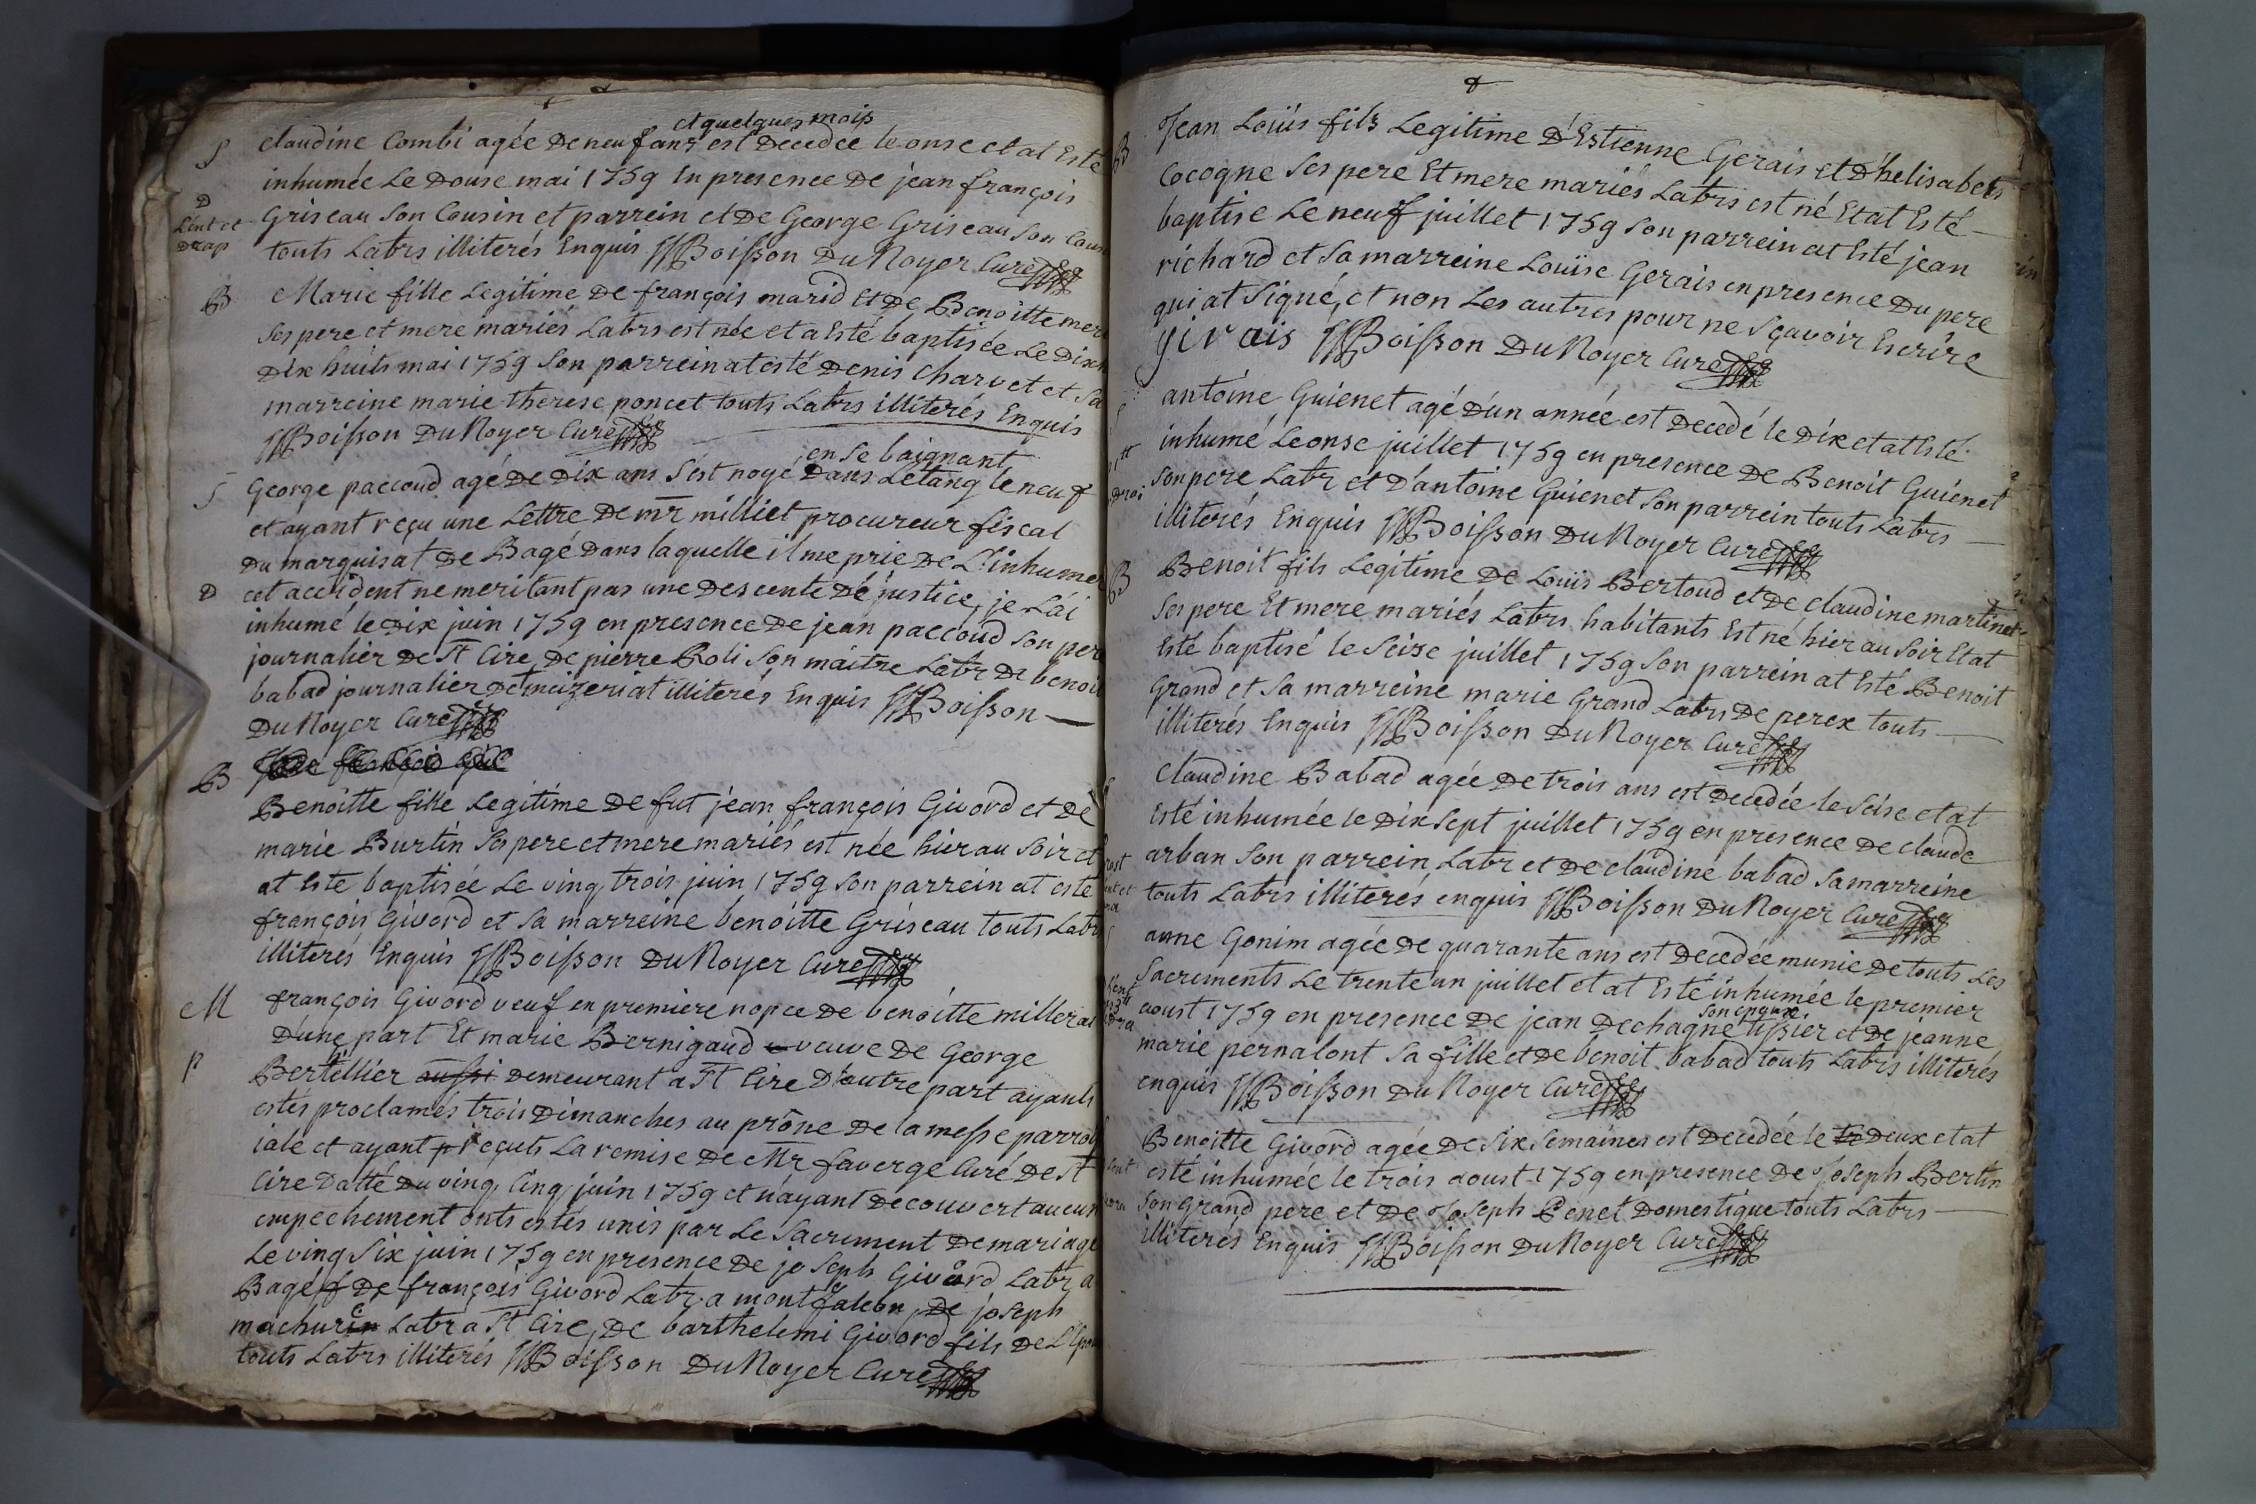 S
claudine Combi agée De neuf ans et quelques mois est Decedée le onse et at Esté
inhumée Le Douse mai 1759 En presence De jean françois
D
Lent et
Drap
Griseau Son Cousin et parrein et De George Griseau Son Cous
touts Labrs illiterés Enquis Boisson Du Noyer Curé
B
Marie fille Legitime De françois marid Et De Benoitte mer
Ses pere et mere mariés Labrs est née et a Esté baptisée Le Dix
Dix huits mai 1759 Son parrein at esté Denis Charvet et Sa
marreine marie therese poncet touts Labrs illiterés Enquis
Boisson Du Noyer Curé
S
George paccoud agé De Dix ans S'est noyé en Se baignant Dans L'etang le neuf
et ayant reçu une Lettre De mr milliet procureur fiscal
Du marquisat De Bagé Dans laquelle il me prie De L'inhume
D
cet accident ne meritant pas une Descente De justice, je L'ai
inhumé le Dix juin 1759 en presence De jean paccoud Son per
journalier De St Cire, De pierre Roli Son maitre Labr De benoi
babad journalier De meizeriat illiterés Enquis Boisson
Du Noyer Curé
B
Benoitte fille Legitime De fut jean françois Givord et De
marie Burtin Ses pere et mere mariés est née hier au Soir et
at Este baptisée Le ving trois juin 1759 Son parrein at esté
françois Givord et Sa marreine benoitte Griseau touts Labr
illiterés Enquis Boisson Du Noyer Curé
M
françois Givord veuf en premiere nopce De benoitte millerat
D'une part Et marie Bernigaud veuve De George
P
Bertillier aussi Demeurant a St Cire D'autre part ayants
estes proclamés trois Dimanches au prône De la messe parroi
iale et ayant reçuts La remise De Mr faverge Curé De St
Cire Datté Du ving Cinq juin 1759 et n'ayant Decouvert aucun
empechement onts estés unis par Le Sacrement De mariage
Le ving Six juin 1759 en presence De joseph Givord Labr a
Bagé De françois Givord Labr a montfalcon, De joseph
machurin Labr a St Cire, De barthelemi Givord fils De L'Epou
touts Labrs illiterés Boisson Du Noyer Curé
B
Jean Loüis fils Legitime D'Estienne Gerais et D'helisabets
Cocogne Ses pere Et mere mariés Labrs est né Et at Esté
baptise Le neuf juillet 1759 Son parrein at Esté jean
richard et Sa marreine Loüise Gerais en presence Du pere
qui at Signé, et non Les autres pour ne Sçavoir Escrire
girais Boisson Du Noyer Curé
S
antoine Guienet agé D'un année est Decedé le Dix et at Esté
inhumé Le onse juillet 1759 en presence De Benoit Guienet
Son pere Labr et D'antoine Guienet Son parrein touts Labrs
illiterés Enquis Boisson Du Noyer Curé
B
Benoit fils Legitime De Loüis Bertoud et De claudine martinet
Ses pere Et mere mariés Labrs habitants Est né hier au Soir Et at
Esté baptisé le Seize juillet 1759 Son parrein at Esté Benoit
Grand et Sa marreine marie Grand Labrs De perex touts
illiterés Enquis Boisson Du Noyer Curé
Claudine Babad agée De trois ans est Decedée le Seise et at
Esté inhumée le Dix Sept juillet 1759 en presence De claude
arban Son parrein Labr et De claudine babad Sa marreine
touts Labrs illiterés enquis Boisson Du Noyer Curé
anne Gonim agée De quarante ans est Decedée munie De touts Les
Sacrements Le trente un juillet et at Esté inhumée le premier
aoust 1759 en presence De jean Dechagne Son epoux tissier et De jeanne
marie pernalont Sa fille et De benoit babad touts Labrs illiterés
enquis Boisson Du Noyer Curé
Benoitte Givord agée De Six Semaines est Decedée le Deux et at
esté inhumée le trois aoust 1759 en presence De Joseph Bertin
Son grand pere et De Joseph Penet Domestique touts Labrs
illiterés Enquis Boisson Du Noyer Curé